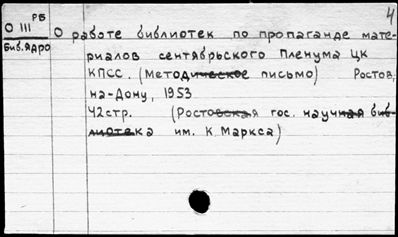 4
РБ
О III
Биб. Ядро
О работе библиотек по пропаганде мате-
риалов сентябрьского Пленума ЦК
КПСС. (Методическое письмо) Ростов,
на-Дону, 1953
42стр. (Ростовская гос. научная биб-
лиотека им. К. Маркса)